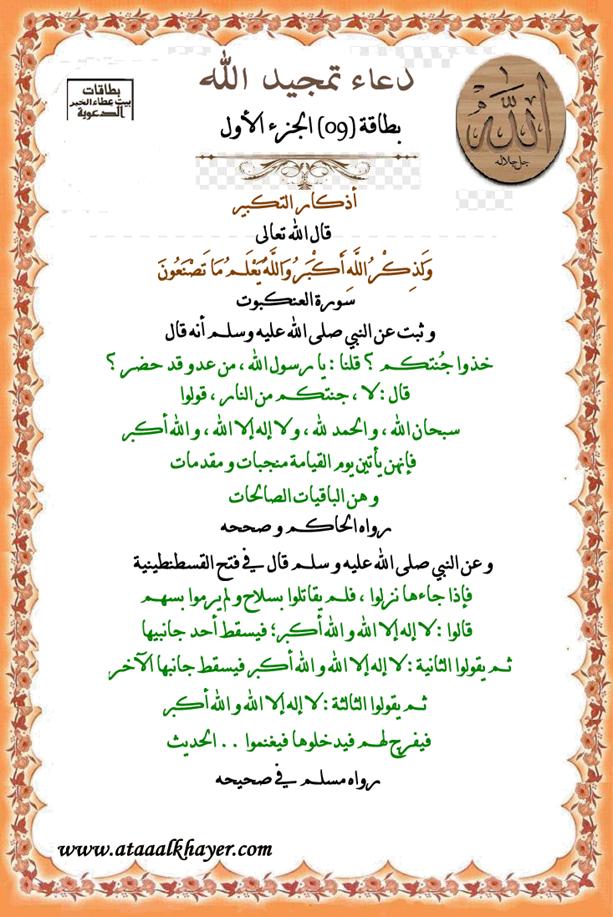 دعاء تمجيد الله
بطاقات
بيت عطاء الخير
الدعوية
الله
جل جلاله
بطاقة (09) الجزء الأول
أذكار التكبير
قال الله تعالى
وَلَذِكْرُ اللَّهِ أَكْبَرُ وَاللَّهُ يَعْلَمُ مَا تَصْنَعُونَ
سورة العنكبوت
و ثبت عن النبي صلى الله عليه وسلم أنه قال
خذوا جُنتكم ؟ قلنا : يا رسول الله ، من عدو قد حضر ؟
قال : لا ، جنتكم من النار ، قولوا
سبحان الله ، و الحمد لله ، ولا إله إلا الله ، و الله أكبر
فإنهن يأتين يوم القيامة منجبات و مقدمات
و هن الباقيات الصالحات
رواه الحاكم و صححه
و عن النبي صلى الله عليه و سلم قال في فتح القسطنطينية
فإذا جاءها نزلوا ، فلم يقاتلوا بسلاح و لم يرموا بسهم
قالوا : لا إله إلا الله و الله أكبر؛ فيسقط أحد جانبيها
ثم يقولوا الثانية : لا إله إلا الله و الله أكبر فيسقط جانبها الآخر
ثم يقولوا الثالثة : لا إله إلا الله و الله أكبر
فيفرج لهم فيدخلوها فيغنموا . . الحديث
رواه مسلم في صحيحه
www.ataaalkhayer.com